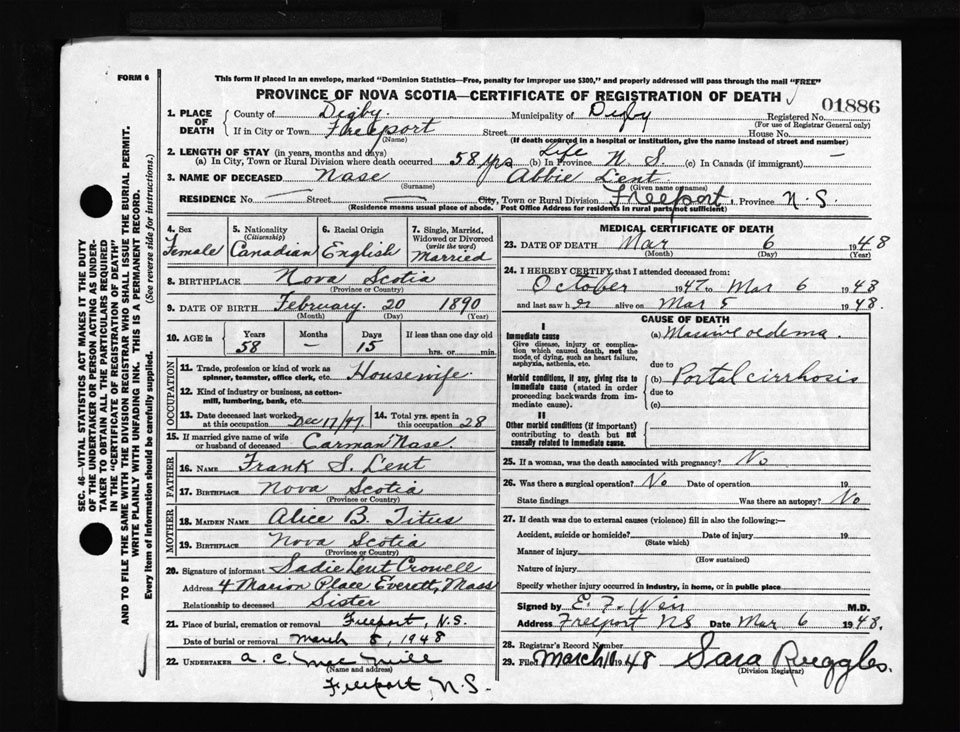 FORM 6
This form if placed in an envelope, marked "Dominion Statistics—Free, penalty for improper use $300," and properly addressed will pass through the mail "FREE"
PROVINCE OF NOVA SCOTIA—CERTIFICATE OF REGISTRATION OF DEATH
01886
1. PLACE OF DEATH County of Digby Municipality of Digby Registered No.
(For use of Registrar General only)
If in City or Town Freeport Street House No.
(Name) (If death occurred in a hospital or institution, give the name instead of street and number)
2. LENGTH OF STAY (in years, months and days)
(a) In City, Town or Rural Division where death occurred 58 yrs (b) In Province Life N. S. (c) In Canada (if immigrant) —
3. NAME OF DECEASED Nase Abbie Lent
(Surname) (Given name or names)
RESIDENCE No. — Street — City, Town or Rural Division Freeport Province N.S.
(Residence means usual place of abode. Post Office Address for residents in rural parts not sufficient)
4. Sex Female
5. Nationality (Citizenship) Canadian
6. Racial Origin English
7. Single, Married, Widowed or Divorced (write the word) Married
8. BIRTHPLACE Nova Scotia
(Province or Country)
9. DATE OF BIRTH February 20 1890
(Month) (Day) (Year)
10. AGE in Years 58 Months — Days 15 If less than one day old hrs. or min.
OCCUPATION
11. Trade, profession or kind of work as spinner, teamster, office clerk, etc. Housewife
12. Kind of industry or business, as cotton-mill, lumbering, bank, etc.
13. Date deceased last worked at this occupation Dec 17/47
14. Total yrs. spent in this occupation 28
15. If married give name of wife or husband of deceased Carman Nase
FATHER
16. NAME Frank S. Lent
17. BIRTHPLACE Nova Scotia
(Province or Country)
MOTHER
18. MAIDEN NAME Alice B. Titus
19. BIRTHPLACE Nova Scotia
(Province or Country)
20. Signature of informant Sadie Lent Crowell
Address 4 Marion Place Everett, Mass
Relationship to deceased Sister
21. Place of burial, cremation or removal Freeport, N.S.
Date of burial or removal March 8, 1948
22. UNDERTAKER A. C.
(Name and address)
Freeport, N.S.
MEDICAL CERTIFICATE OF DEATH
23. DATE OF DEATH Mar 6 1948
(Month) (Day) (Year)
24. I HEREBY CERTIFY, that I attended deceased from:
October 1947 to Mar 6 1948
and last saw her alive on Mar 5 1948.
CAUSE OF DEATH
I
Immediate cause
Give disease, injury or complication which caused death, not the mode of dying, such as heart failure, asphyxia, asthenia, etc.
(a) Massive oedema.
due to
Morbid conditions, if any, giving rise to immediate cause (stated in order proceeding backwards from immediate cause).
(b) Portal cirrhosis
due to
(c)
II
Other morbid conditions (if important) contributing to death but not causally related to immediate cause.
25. If a woman, was the death associated with pregnancy? No
26. Was there a surgical operation? No Date of operation 19
State findings Was there an autopsy? No
27. If death was due to external causes (violence) fill in also the following:—
Accident, suicide or homicide? Date of injury 19
(State which)
Manner of injury
(How sustained)
Nature of injury
Specify whether injury occurred in industry, in home, or in public place
Signed by E. F. Weir M.D.
Address Freeport NS Date Mar 6 1948.
28. Registrar's Record Number
29. Filed March 1948 Sara Ruggles.
(Division Registrar)
SEC. 46—VITAL STATISTICS ACT MAKES IT THE DUTY
OF THE UNDERTAKER OR PERSON ACTING AS UNDER-
TAKER TO OBTAIN ALL THE PARTICULARS REQUIRED
IN THE "CERTIFICATE OF REGISTRATION OF DEATH"
AND TO FILE THE SAME WITH THE DIVISION REGISTRAR WHO SHALL ISSUE THE BURIAL PERMIT.
WRITE PLAINLY WITH UNFADING INK. THIS IS A PERMANENT RECORD.
Every item of information should be carefully supplied. (See reverse side for instructions.)